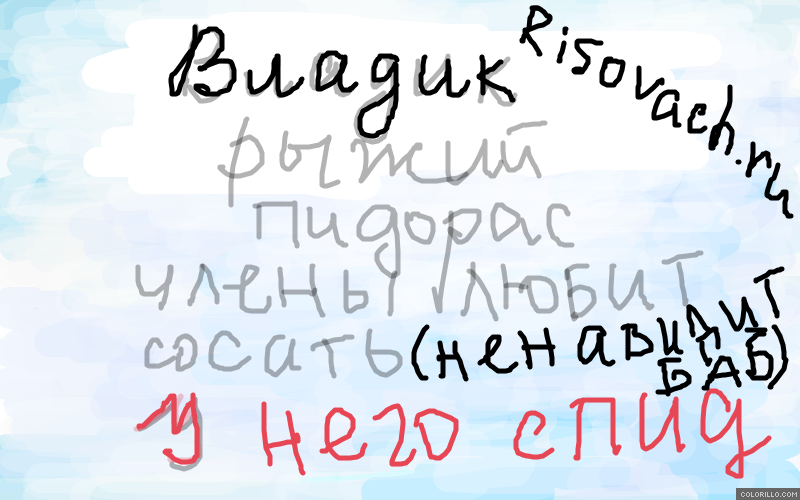 Владик
Risovach.ru
рыжий
пидорас
члены любит
сосать (ненавидит
БАБ)
У него спид
COLORILLO.COM